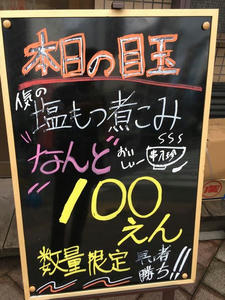 本日の目玉
人気の
塩もつ煮こみ
"なんど"
おいしいー
"100
えん
数量限定
早い者
勝ち!!